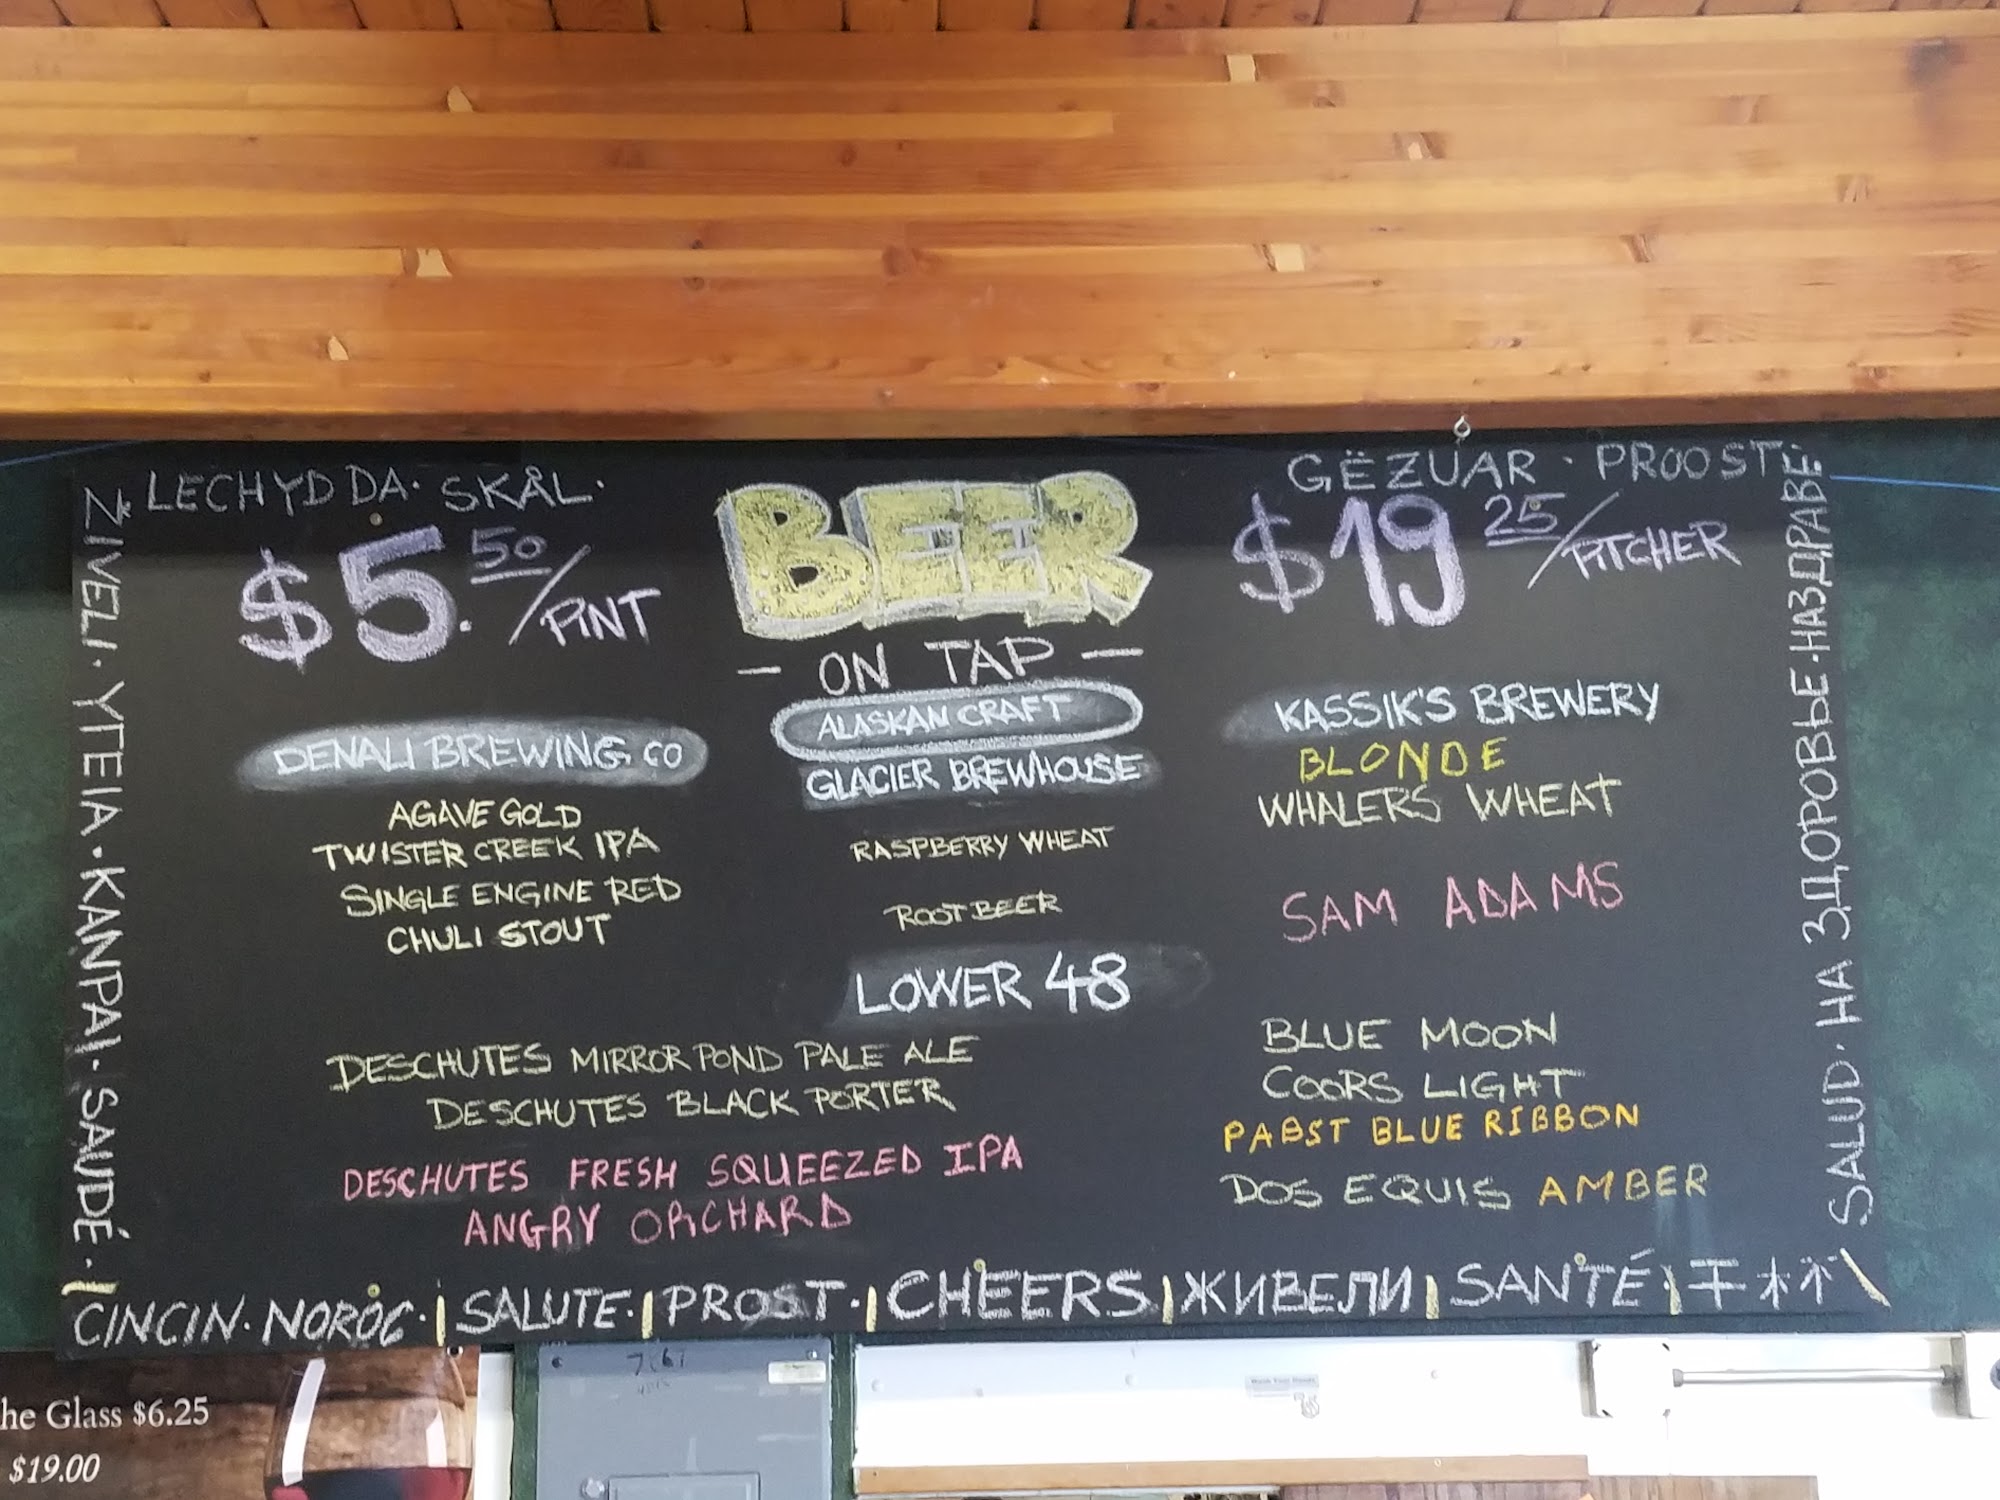 LECHYD DA · SKÅL ·
GËZUAR · PROOST ·
ŽIVELI · ΥΓΕΙΑ · KANPAI · SAUDÉ ·
$5.50/PINT
BEER
ON TAP
$19 25/PITCHER
DENALI BREWING CO
AGAVE GOLD
TWISTER CREEK IPA
SINGLE ENGINE RED
CHULI STOUT
ALASKAN CRAFT
GLACIER BREWHOUSE
RASPBERRY WHEAT
ROOT BEER
KASSIK'S BREWERY
BLONDE
WHALERS WHEAT
SAM ADAMS
LOWER 48
DESCHUTES MIRROR POND PALE ALE
DESCHUTES BLACK PORTER
DESCHUTES FRESH SQUEEZED IPA
ANGRY ORCHARD
BLUE MOON
COORS LIGHT
PABST BLUE RIBBON
DOS EQUIS AMBER
SALUD · НА ЗДОРОВЬЕ · НАЗДРАВЕ
CINCIN · NOROC · SALUTE · PROST · CHEERS ЖИВЕЛИ SANTÉ
he Glass $6.25
$19.00